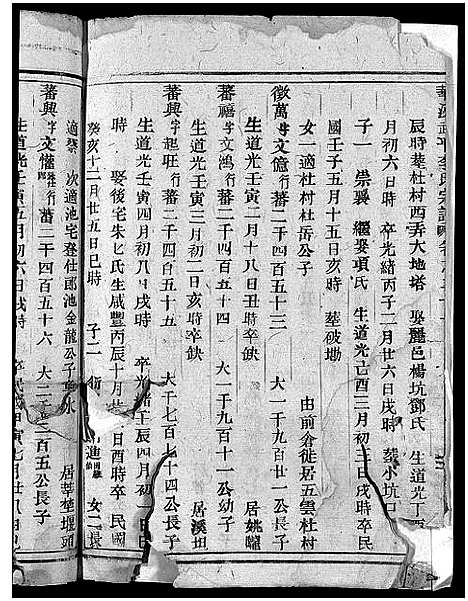 辰時葬杜村西弄大地塔 娶麗邑楊坑鄧氏 生道光丁
月初六日時 卒光緒丙子二月廿六日戌時 葬小坑口
子一 崇翼 繼娶項氏 生道光己酉三月初三日戌時卒民
國壬子五月十五日亥時 葬破塆
女一適杜村杜岳公子 由前倉徙居五雲杜村
徵萬 字文億行蕃二千四百五十三 大一千九百廿一公長子
生道光壬寅二月十八日丑時卒缺 居姚嚨
蕃禧 字文鴻行蕃二千四百五十四 大一千九百十一公幼子
生道光壬寅三月初二亥時卒缺 居溪坦
蕃興 字起旺行蕃二千四百五十五 大千七百七十四公長子
生道光壬寅四月初八日戌時 卒光緒壬辰四月初 日
時 娶後宅朱七氏生咸豐丙辰十月廿 日酉時卒民國
癸亥十二月廿五日巳時 子二 進 女二長
適蔡 次適池宅登仕郎池金龍公子 水 居葬堡堰頭
蕃興 字文權行蕃二千四百五十六 大二千 百五公長子
生道光壬寅五月初六日戌時 卒民 寅七月廿八日